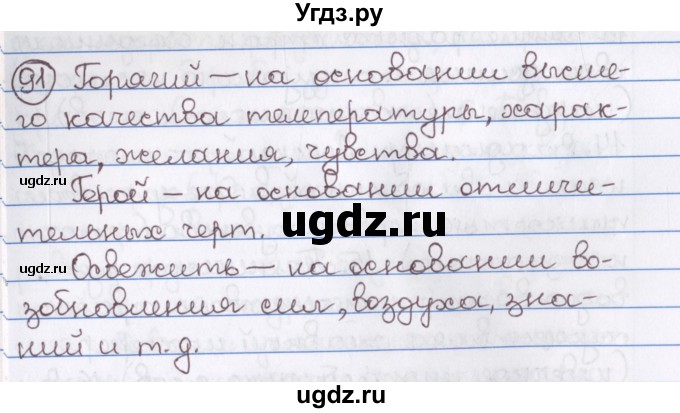 Угдз.ру
91 Горячий – на основании высше-
го качества температуры, харак-
тера, желания, чувства.
ugdz.ru
Герой – на основании отличи-
тельных черт.
ugdz.ru
ugdz.ru
Освежить – на основании во-
зобновления сил, воздуха, зна-
ugdz.ru
ний и т.д.
ugdz.ru